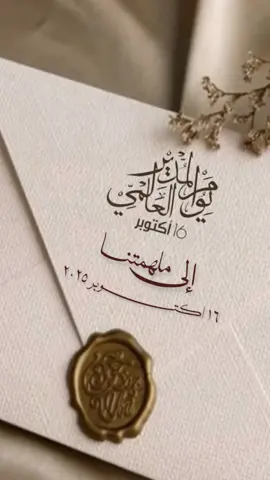 يوم المدير
العالمي
16 أكتوبر
إلى ملهمتنا
١٦ أكتوبر ٢٠٢٥